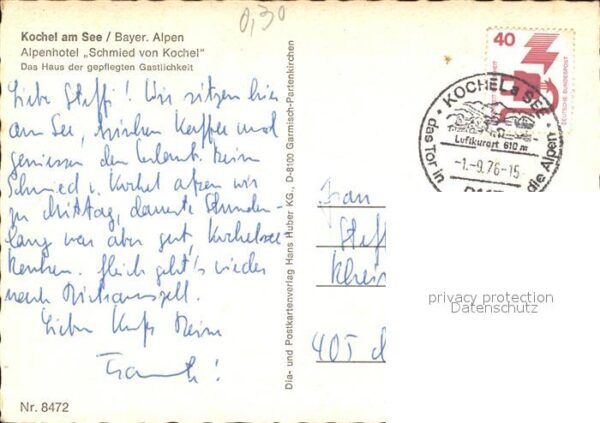 0,30
Kochel am See / Bayer. Alpen
Alpenhotel „Schmied von Kochel"
Das Haus der gepflegten Gastlichkeit
Liebe Steffi! Wir sitzen hier
am See, trinken Kaffee und
geniessen den Urlaub. Beim
Schmied v. Kochel assen wir
zu Mittag, dauerte Stunden-
lang war aber gut, Kochelsee
Renken. Gleich geht's wieder
nach
Lieber Kuß Deine
Nr. 8472
Dia- und Postkartenverlag Hans Huber KG., D-8100 Garmisch-Partenkirchen
40
DEUTSCHE BUNDESPOST
KOCHEL a SEE
Luftkurort 610 m
-1.-9.76-15
das Tor in die Alpen
Frau
Steff
405
privacy protection
Datenschutz